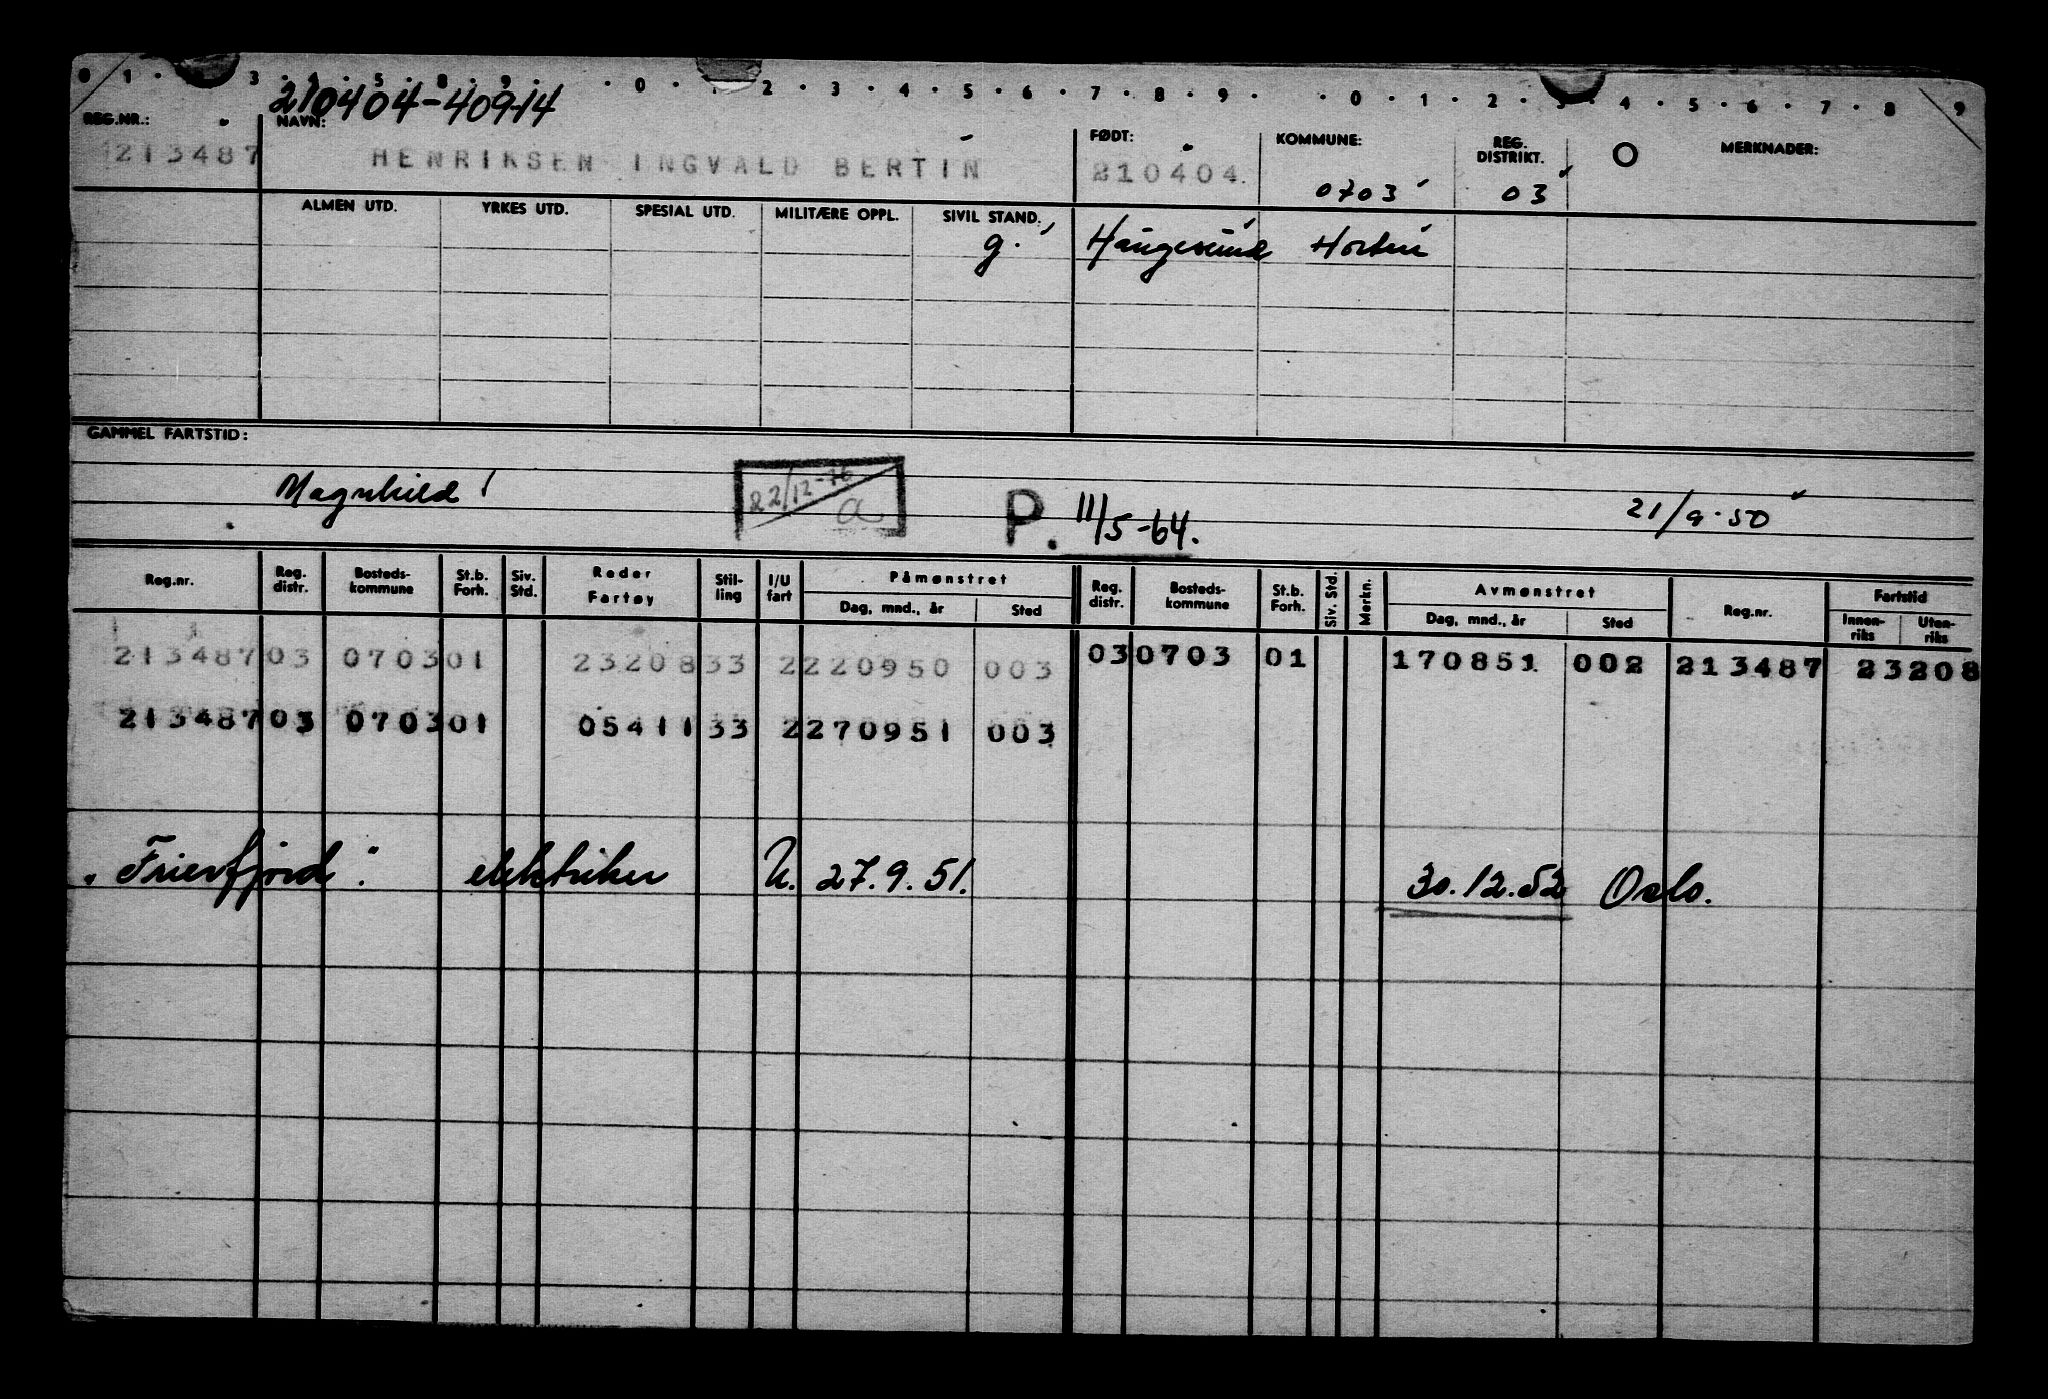 0 1 3 4 5 8 9 0 1 2 3 4 5 6 7 8 9 0 1 2 3 4 5 6 7 8 9
210404-40914
REG.NR.: NAVN: FØDT: KOMMUNE: REG. DISTRIKT. MERKNADER:
213487 HENRIKSEN INGVALD BERTIN 210404. 0703 03
ALMEN UTD. YRKES UTD. SPESIAL UTD. MILITÆRE OPPL. SIVIL STAND.
g. Haugesund Horten
GAMMEL FARTSTID:
Magnhild 22/12-76 a P. 11/5-64. 21/9-50
Reg.nr. Reg. distr. Bosteds-kommune St.b. Forh. Siv. Std. Reder Fartøy Stil-ling I/U fart Påmønstret Reg. distr. Bosteds-kommune St.b. Forh. Siv. Std. Merkn. Avmønstret Reg.nr. Fartstid
Dag, mnd., år Sted Dag, mnd., år Sted Innen-riks Uten-riks
213487 03 0703 01 23208 33 2 220950 003 03 0703 01 170851 002 213487 23208
213487 03 0703 01 05411 33 2 270951 003
"Frierfjord". elektriker U. 27.9.51. 30.12.52 Oslo.